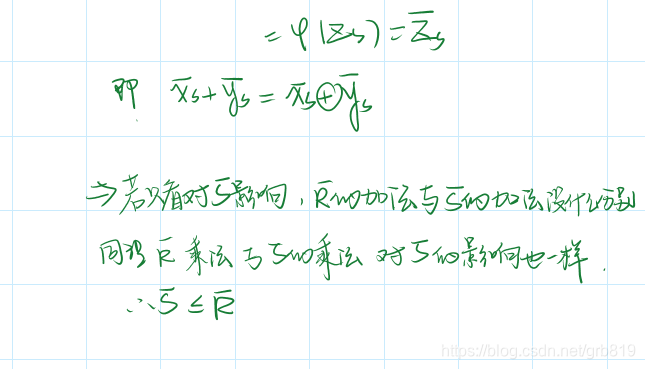 = φ(z_s) = z̄_s
即 x̄_s + ȳ_s = x̄_s ⊕ ȳ_s
⇒ 若只看对 S̄ 影响，R̄的加法与S̄的加法没什么分别
同理 R̄ 乘法与S̄的乘法 对S̄的影响也一样.
∴ S̄ ≤ R̄
https://blog.csdn.net/grb819